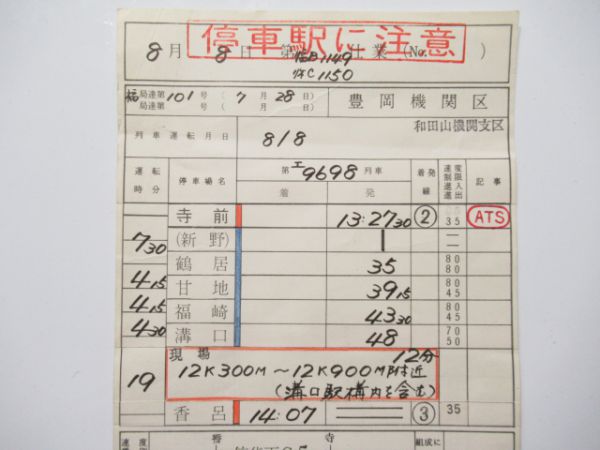 停車駅に注意
8月 8日 第 仕業 (No. )
1149
1150
福局達第101号 ( 7月28日)
局達第 号 ( 月 日)
豊岡機関区
和田山機関支区
列車運転月日 8/8
運転時分 停車場名 第工9698列車 着発線 速度制限 進入 進出 記事
着 発
寺前 13:27 30 ② 35 ATS
7 30 (新野) | — —
鶴居 35 80 80
4 15 甘地 39 15 80 45
4 15 福崎 43 30 80 45
4 30 溝口 48 70 50
現場 12分
19 12K300M〜12K900M附近
(溝口駅構内を含む)
香呂 14:07 ③ 35
速度 寺 組成に